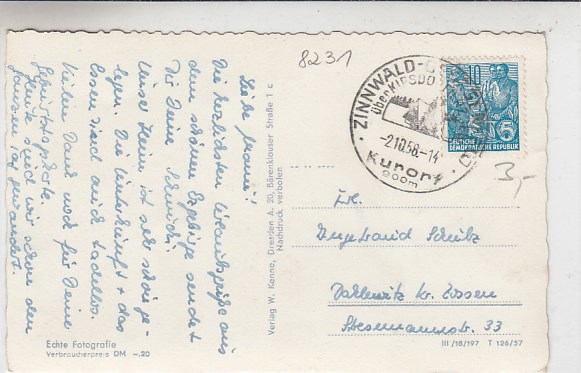 Liebe
Die herzlichsten Urlaubsgrüße aus
dem schönen Erzgebirge sendet
Dir Deine
Unser Heim ist sehr schön ge-
legen. Die Unterkunft + das
Essen sind auch tadellos.
Vielen Dank noch für Deine
Geburtstagskarte.
Heute sind wir schon den
ganzen Tag gewandert.
Echte Fotografie
Verbraucherpreis DM -.20
Verlag W. Kenne, Dresden A. 20, Bärenklauser Straße 1 c
Nachdruck verboten
8231
ZINNWALD-G
über KIPSDO
-2.10.58.-14
Kurort
900m
10
5
DEUTSCHE
DEMOKRATISCHE REPUBLIK
3,-
Frl.
Ingetraud Schulz
Essen
Stresemannstr. 33
III/18/197 T 126/57